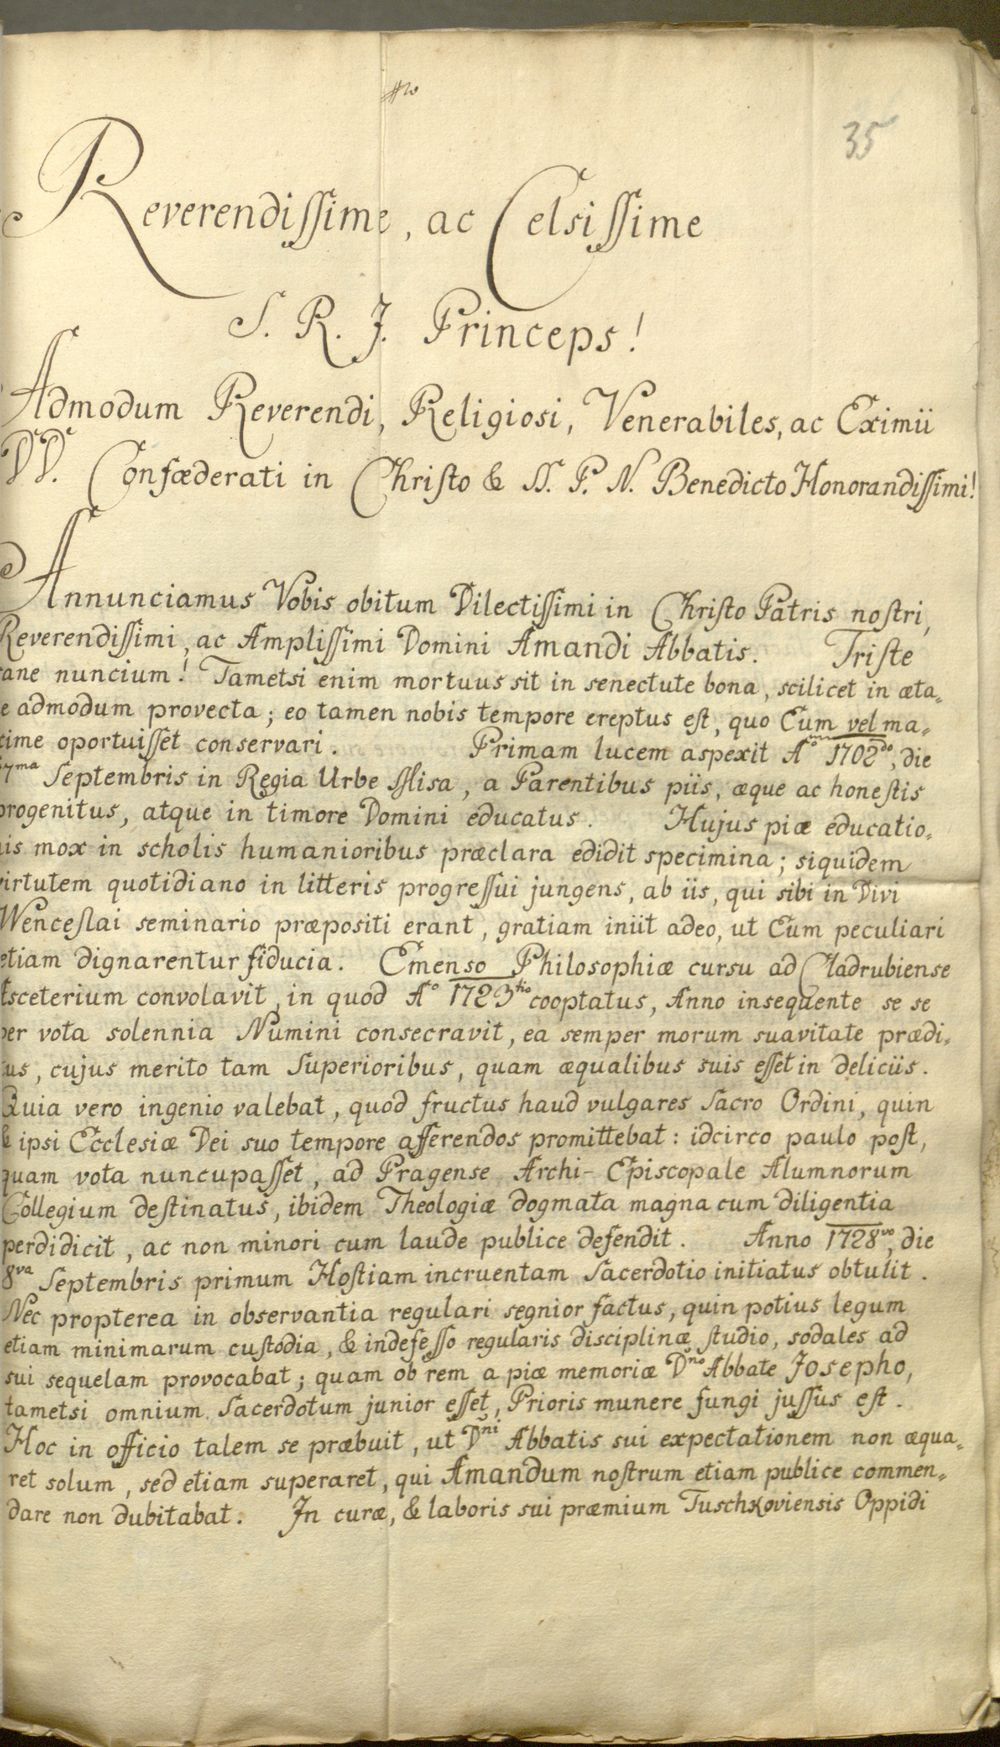 35
Reverendissime, ac Celsissime
S. R. J. Princeps!
Admodum Reverendi, Religiosi, Venerabiles, ac Eximii
DD. Confæderati in Christo & SS. P. N. Benedicto Honorandissimi!
Annunciamus Vobis obitum Dilectissimi in Christo Patris nostri,
Reverendissimi, ac Amplissimi Domini Amandi Abbatis. Triste
sane nuncium! Tametsi enim mortuus sit in senectute bona, scilicet in æta„
te admodum provecta; eo tamen nobis tempore ereptus est, quo Eum vel ma„
xime oportuisset conservari. Primam lucem aspexit Aº 1702do, die
17ma Septembris in Regia Urbe Misa, a Parentibus piis, æque ac honestis
progenitus, atque in timore Domini educatus. Hujus piæ educatio„
nis mox in scholis humanioribus præclara edidit specimina; siquidem
virtutem quotidiano in litteris progressui jungens, ab iis, qui sibi in Divi
Wenceslai seminario præpositi erant, gratiam iniit adeo, ut Eum peculiari
etiam dignarentur fiducia. Emenso Philosophiæ cursu ad Cladrubiense
Asceterium convolavit, in quod Aº 1723tio cooptatus, Anno insequente se se
per vota solennia Numini consecravit, ea semper morum suavitate prædi„
tus, cujus merito tam Superioribus, quam æqualibus suis esset in deliciis.
Quia vero ingenio valebat, quod fructus haud vulgares Sacro Ordini, quin
& ipsi Ecclesiæ Dei suo tempore afferendos promittebat: idcirco paulo post,
quam vota nuncupasset, ad Pragense Archi-Episcopale Alumnorum
Collegium destinatus, ibidem Theologiæ dogmata magna cum diligentia
perdidicit, ac non minori cum laude publice defendit. Anno 1728vo, die
8va Septembris primum Hostiam incruentam Sacerdotio initiatus obtulit.
Nec propterea in observantia regulari segnior factus, quin potius legum
etiam minimarum custodia, & indefesso regularis disciplinæ studio, sodales ad
sui sequelam provocabat; quam ob rem a piæ memoriæ Dno Abbate Josepho,
tametsi omnium Sacerdotum junior esset, Prioris munere fungi jussus est.
Hoc in officio talem se præbuit, ut Dni Abbatis sui expectationem non æqua„
ret solum, sed etiam superaret, qui Amandum nostrum etiam publice commen„
dare non dubitabat. In curæ, & laboris sui præmium Tuschkoviensis Oppidi